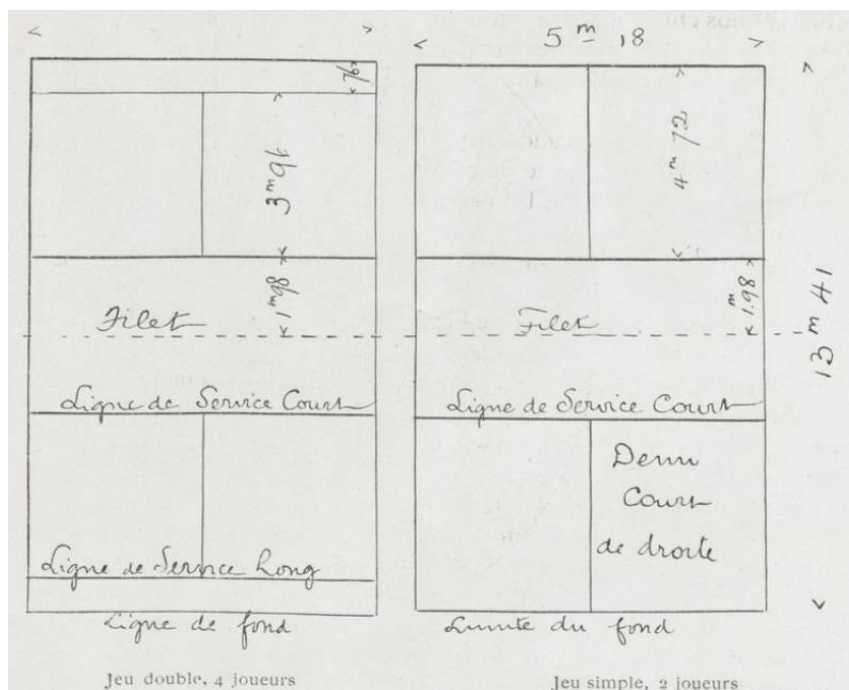 5 m 18
76
3 m 96
1 m 98
Filet
Ligne de Service Court
Ligne de Service Long
Ligne de fond
Jeu double, 4 joueurs
4 m 72
1 m.98
13 m 41
Filet
Ligne de Service Court
Demi
Court
de droite
Limite du fond
Jeu simple, 2 joueurs